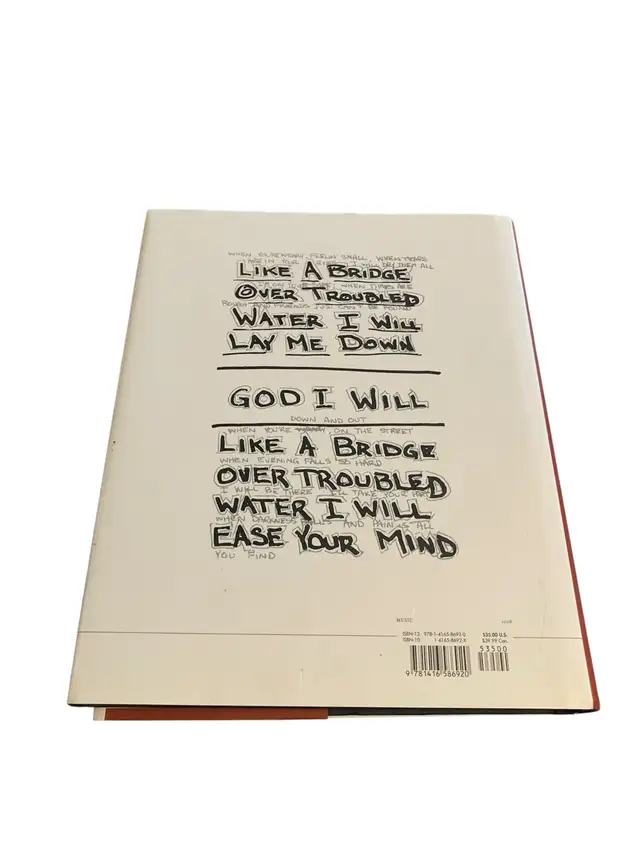 WHEN YOU'RE WEARY, FEELIN SMALL, WHEN TEARS
ARE IN YOUR EYES I WILL DRY THEM ALL
LIKE A BRIDGE
I'M ON YOUR SIDE, WHEN TIMES ARE
OVER TROUBLED
ROUGH AND FRIENDS JUST CAN'T BE FOUND
WATER I WILL
LAY ME DOWN
GOD I WILL
DOWN AND OUT
WHEN YOU'RE ON THE STREET
LIKE A BRIDGE
WHEN EVENING FALLS SO HARD
OVER TROUBLED
I WILL BE THERE I'LL TAKE YOUR PART
WATER I WILL
WHEN DARKNESS FALLS AND PAIN IS ALL
EASE YOUR MIND
YOU FIND
MUSIC
ISBN-13: 978-1-4165-8692-0 $35.00 U.S.
ISBN-10: 1-4165-8692-X $39.99 Can.
53500
9 781416 586920